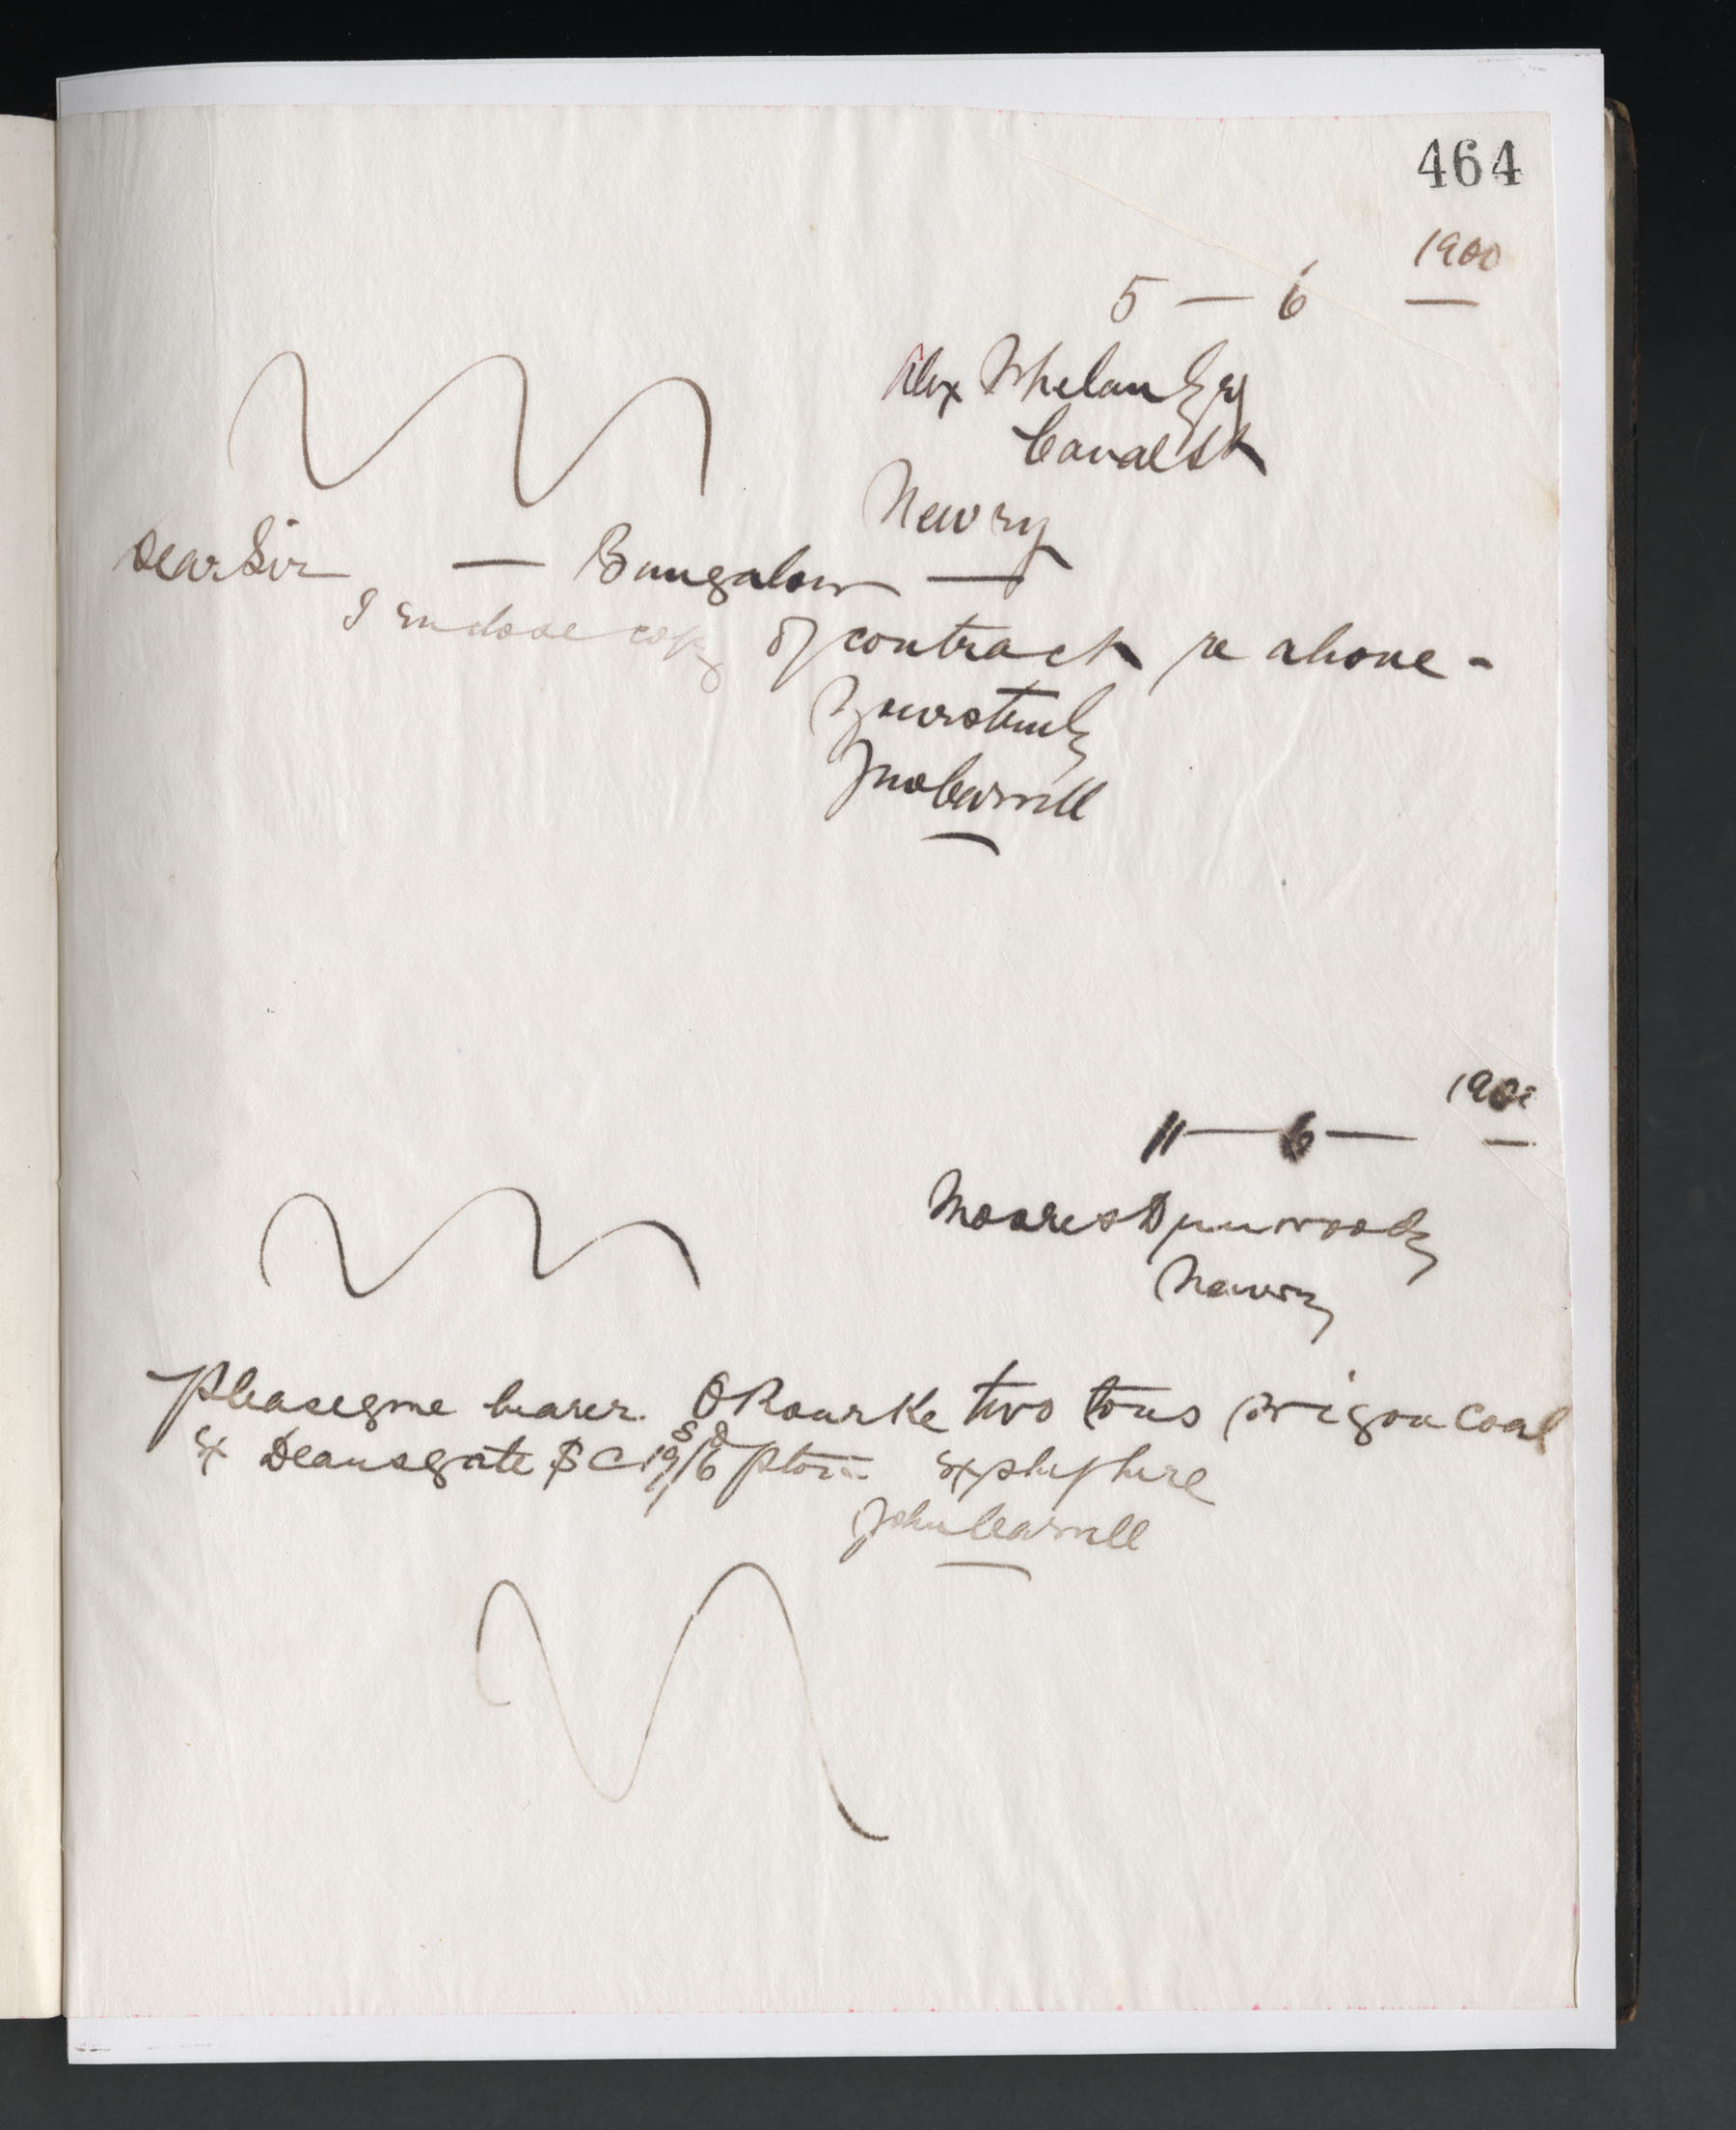 464
1900
5 — 6
Alex Whelan Esq
Canal St
Newry
Dear Sir — Bungalow —
I enclose copy of contract re above -
Yours truly
Jno Carvill
1900
11 — 6 —
Moore & Dunwoody
Newry
Please give bearer O Rourke two tons Orrigon Coal
Ex Deansgate 19/6 p ton Ex ship here
John Carvill